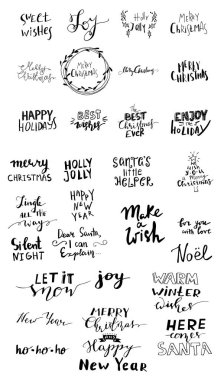 SWEET
wishes
Joy
Holly
Jolly
MERRY
CHRISTMAS
Merry
Christmas
MERRY
CHRISTMAS
Merry Christmas
MERRY
CHRISTMAS
HAPPY
HOLIDAYS
BEST
Wishes
The
BEST
Christmas
EVER
ENJOY
the
HOLIDAY
merry
CHRISTMAS
HOLLY
JOLLY
SANTA'S
little
HELPER
MERRY
CHRISTMAS
Jingle
ALL THE
Way
HAPPY
NEW
YEAR
Make
a
Wish
for you
with love
Silent
NIGHT
Dear Santa,
I can
Explain...
Noël
LET IT
Snow
joy
WARM
WINTER
wishes
New Year
MERRY
Christmas
HERE
comes
SANTA
ho-ho-ho
Happy
New Year